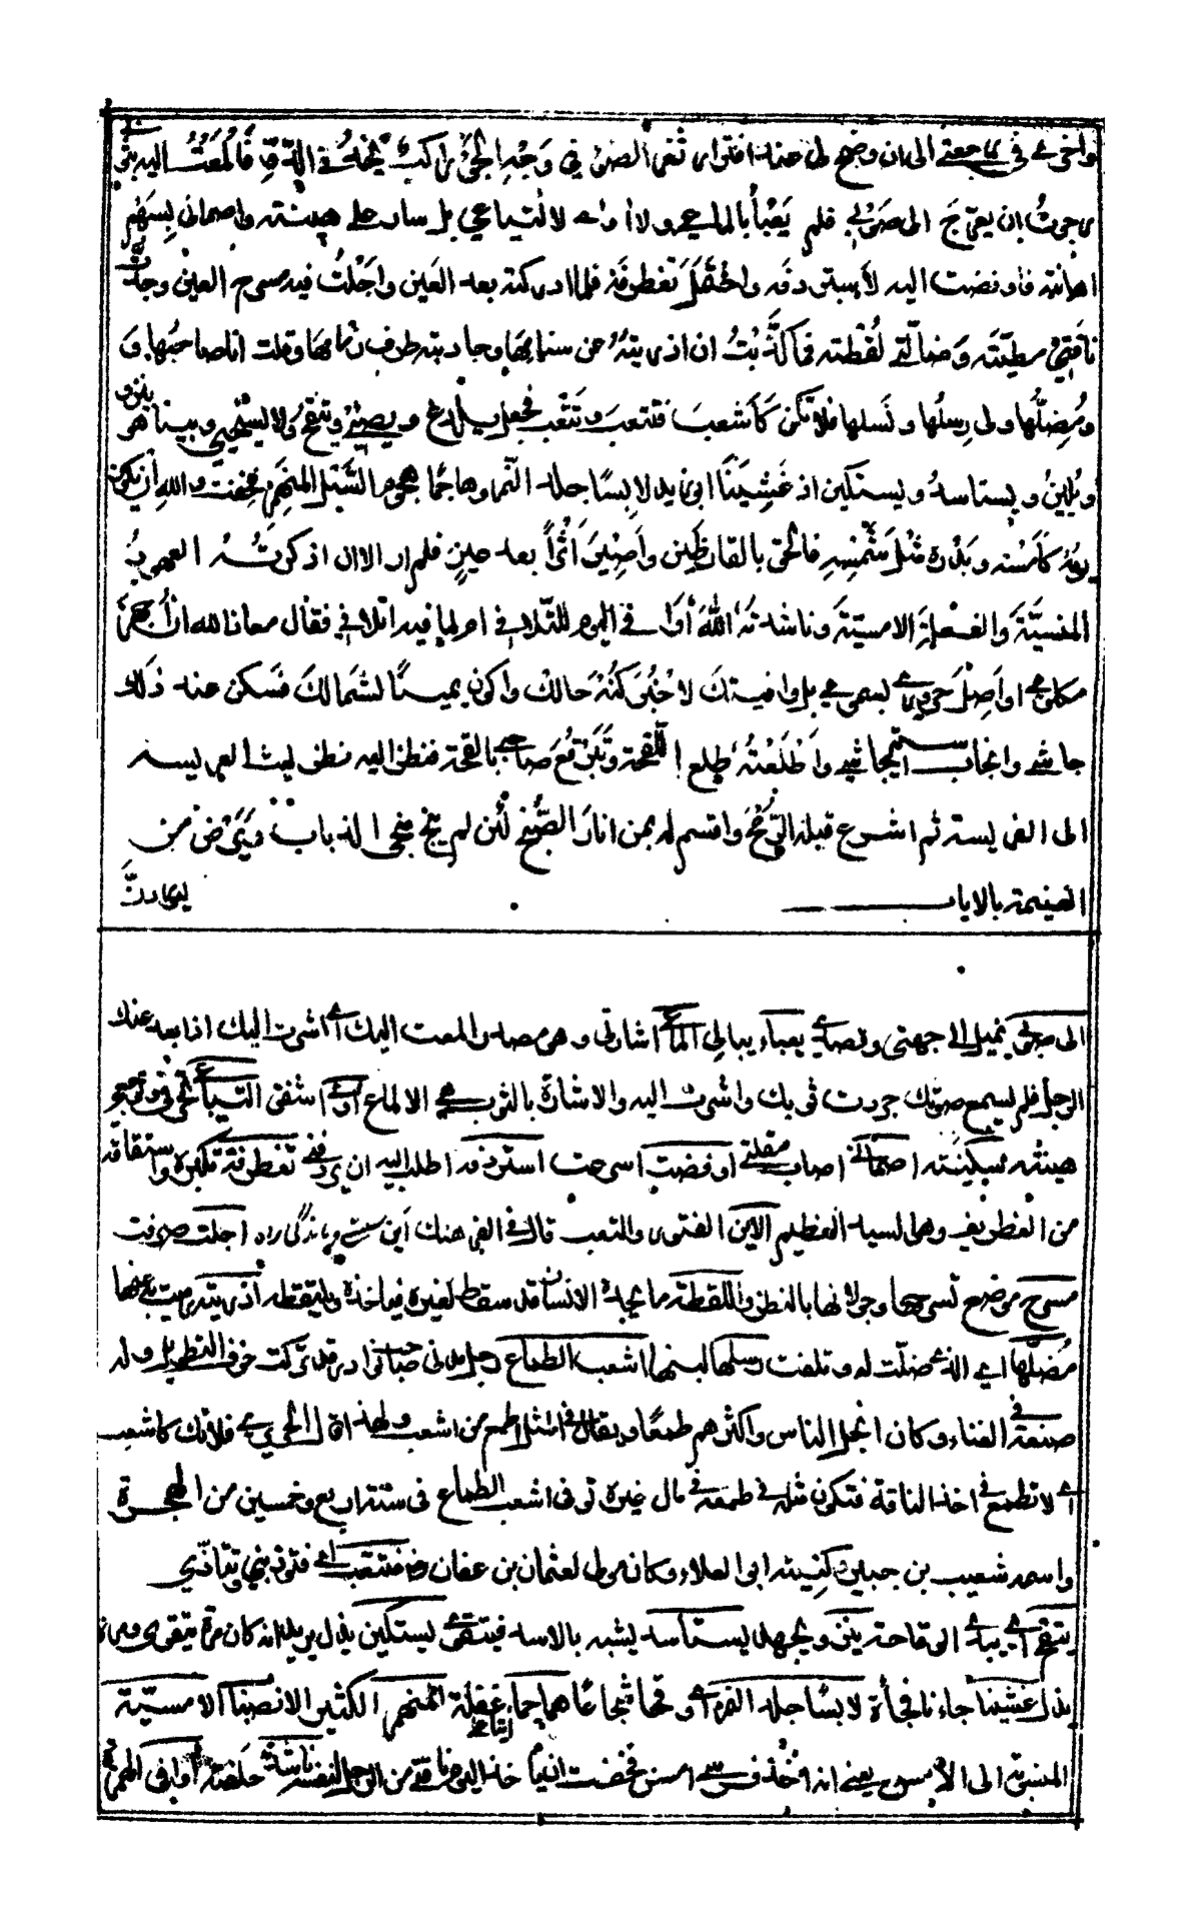 واخرى في مراجعتي الى ان وضح لي عند افترار ثغر الضوء في وجه الجو راكب يخد في الدو فالمعت اليه بثوبي
رجوت ان يعرج الى صوبي فلم يعبأ بالماعي ولا اوى لالتياعي بل سار على هينته واصماني بسهم
اهانته فاوفضت اليه لأستردفه واحتمل تغطرفه فلما ادركته بعد الاين واجلت فيه مسرح العين وجدت
ناقتي مطيته وضالتي لقطته فما كذبت ان اذريته عن سنامها وجاذبته طرف زمامها وقلت انا صاحبها و
ومضلها ولي رسلها ونسلها فلا تكن كأشعب فتتعب وتتعب فجعل يلدغ ويصئي ويتقح ولا يستحيي وبينا هو ينزو
ويلين ويستاسد ويستكين اذ غشينا ابو زيد لابسا جلد النمر وهاجما هجوم السيل المنهمر فخفت والله ان يكون
يومه كامسه وبدره مثل شمسه فالحق بالقارظين واصير اثرا بعد عين فلم ار الا ان اذكرته العهود
المنسية والفعلة الامسية وناشدته الله أوافى اليوم للتلافي ام لما فيه اتلافي فقال معاذ الله ان أجهز
مكلومي او اصل حروري بسمومي بل وافيتك لاخبر كنه حالك واكون يمينا لشمالك فسكن عند ذلك
جاشي وانجاب استيحاشي واطلعته طلع اللقحة وتبرقع صاحبي بالقحة فنظر اليه نظر ليث العريسة
الى الفريسة ثم اشرع قبله الرمح واقسم له بمن انار الصبح لئن لم ينج منجى الذباب ويرض من
الغنيمة بالاياب
ليوردن
الى صوبي يميل الى جهتي وقصدي يعباء يبالي الماعي اشارتي وهو مصدر المعت اليك اي اشرت اليك اذا بعد عنك
الرجل فلم يسمع صوتك جردت ثوبك واشرت اليه والاشارة بالثوب هي الالماع اوى اشفق التياعي تحرقي وتوجعي
هينته سكينته اصماني اصاب مقلتي اوفضت اسرعت استردفه اطلب اليه ان يردفني تغطرفه تكبره واشتقاقه
من الغطريف وهو السيد العظيم الاين الفتور والتعب قال في الفرهنك اين سستي وماندگي راه اجلت صرفت
مسرح موضع تسريحها وجولانها بالنظر واللقطة ما يجده الانسان قد سقط لغيره فياخذه ويلتقطه اذريته رميت به عنها
مضلها اي الذي ضلت له وتلفت رسلها لبنها اشعب الطماع رجل مدني
صنعة في الغناء وكان ابخل الناس واكثرهم طمعا ويقال في المثل اطمع من اشعب ولهذا قال الحريري فلا تك كاشعب
اي لا تطمع في اخذ الناقة فتكون مثله في طمعه في مال غيره توفي اشعب الطماع في سنة اربع وخمسين من الهجرة
واسمه شعيب بن جبير كنيته ابو العلاء وكان مولى لعثمان بن عفان رض فتتعب اي فتوذيني وتتأذي
يتقح اي يبدي الوقاحة ينزو ويجهل يستأسد يشبه بالاسد فيتقوى يستكين يذل يريد انه كان مرة يتقوى ومرة
يذل غشينا جاءنا فجأة لابسا جلد النمر اي وقحا شجاعا هاجما غفلة المنهمر الكثير الانصباب الامسية
المنسوبة الى الأمس يعني انه اخذ فرسي امس فخفت خلفته أوافى